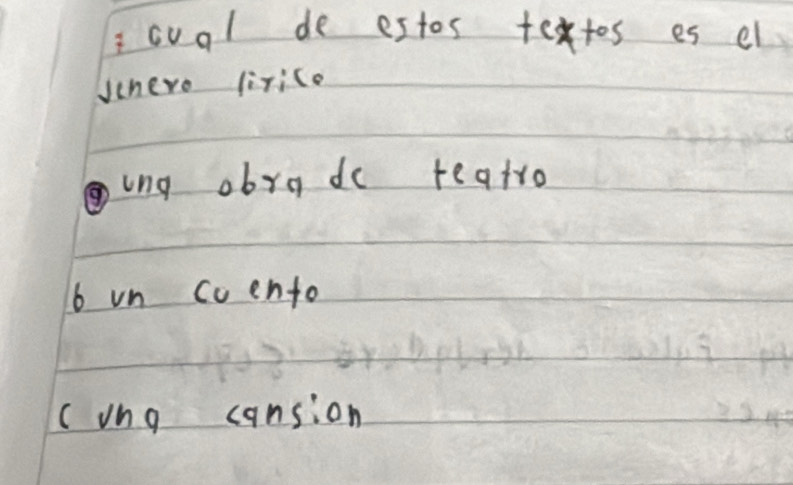 : cual de estos textos es el
jenero lirico
a una obra de teatro
b un cuento
c una cansion